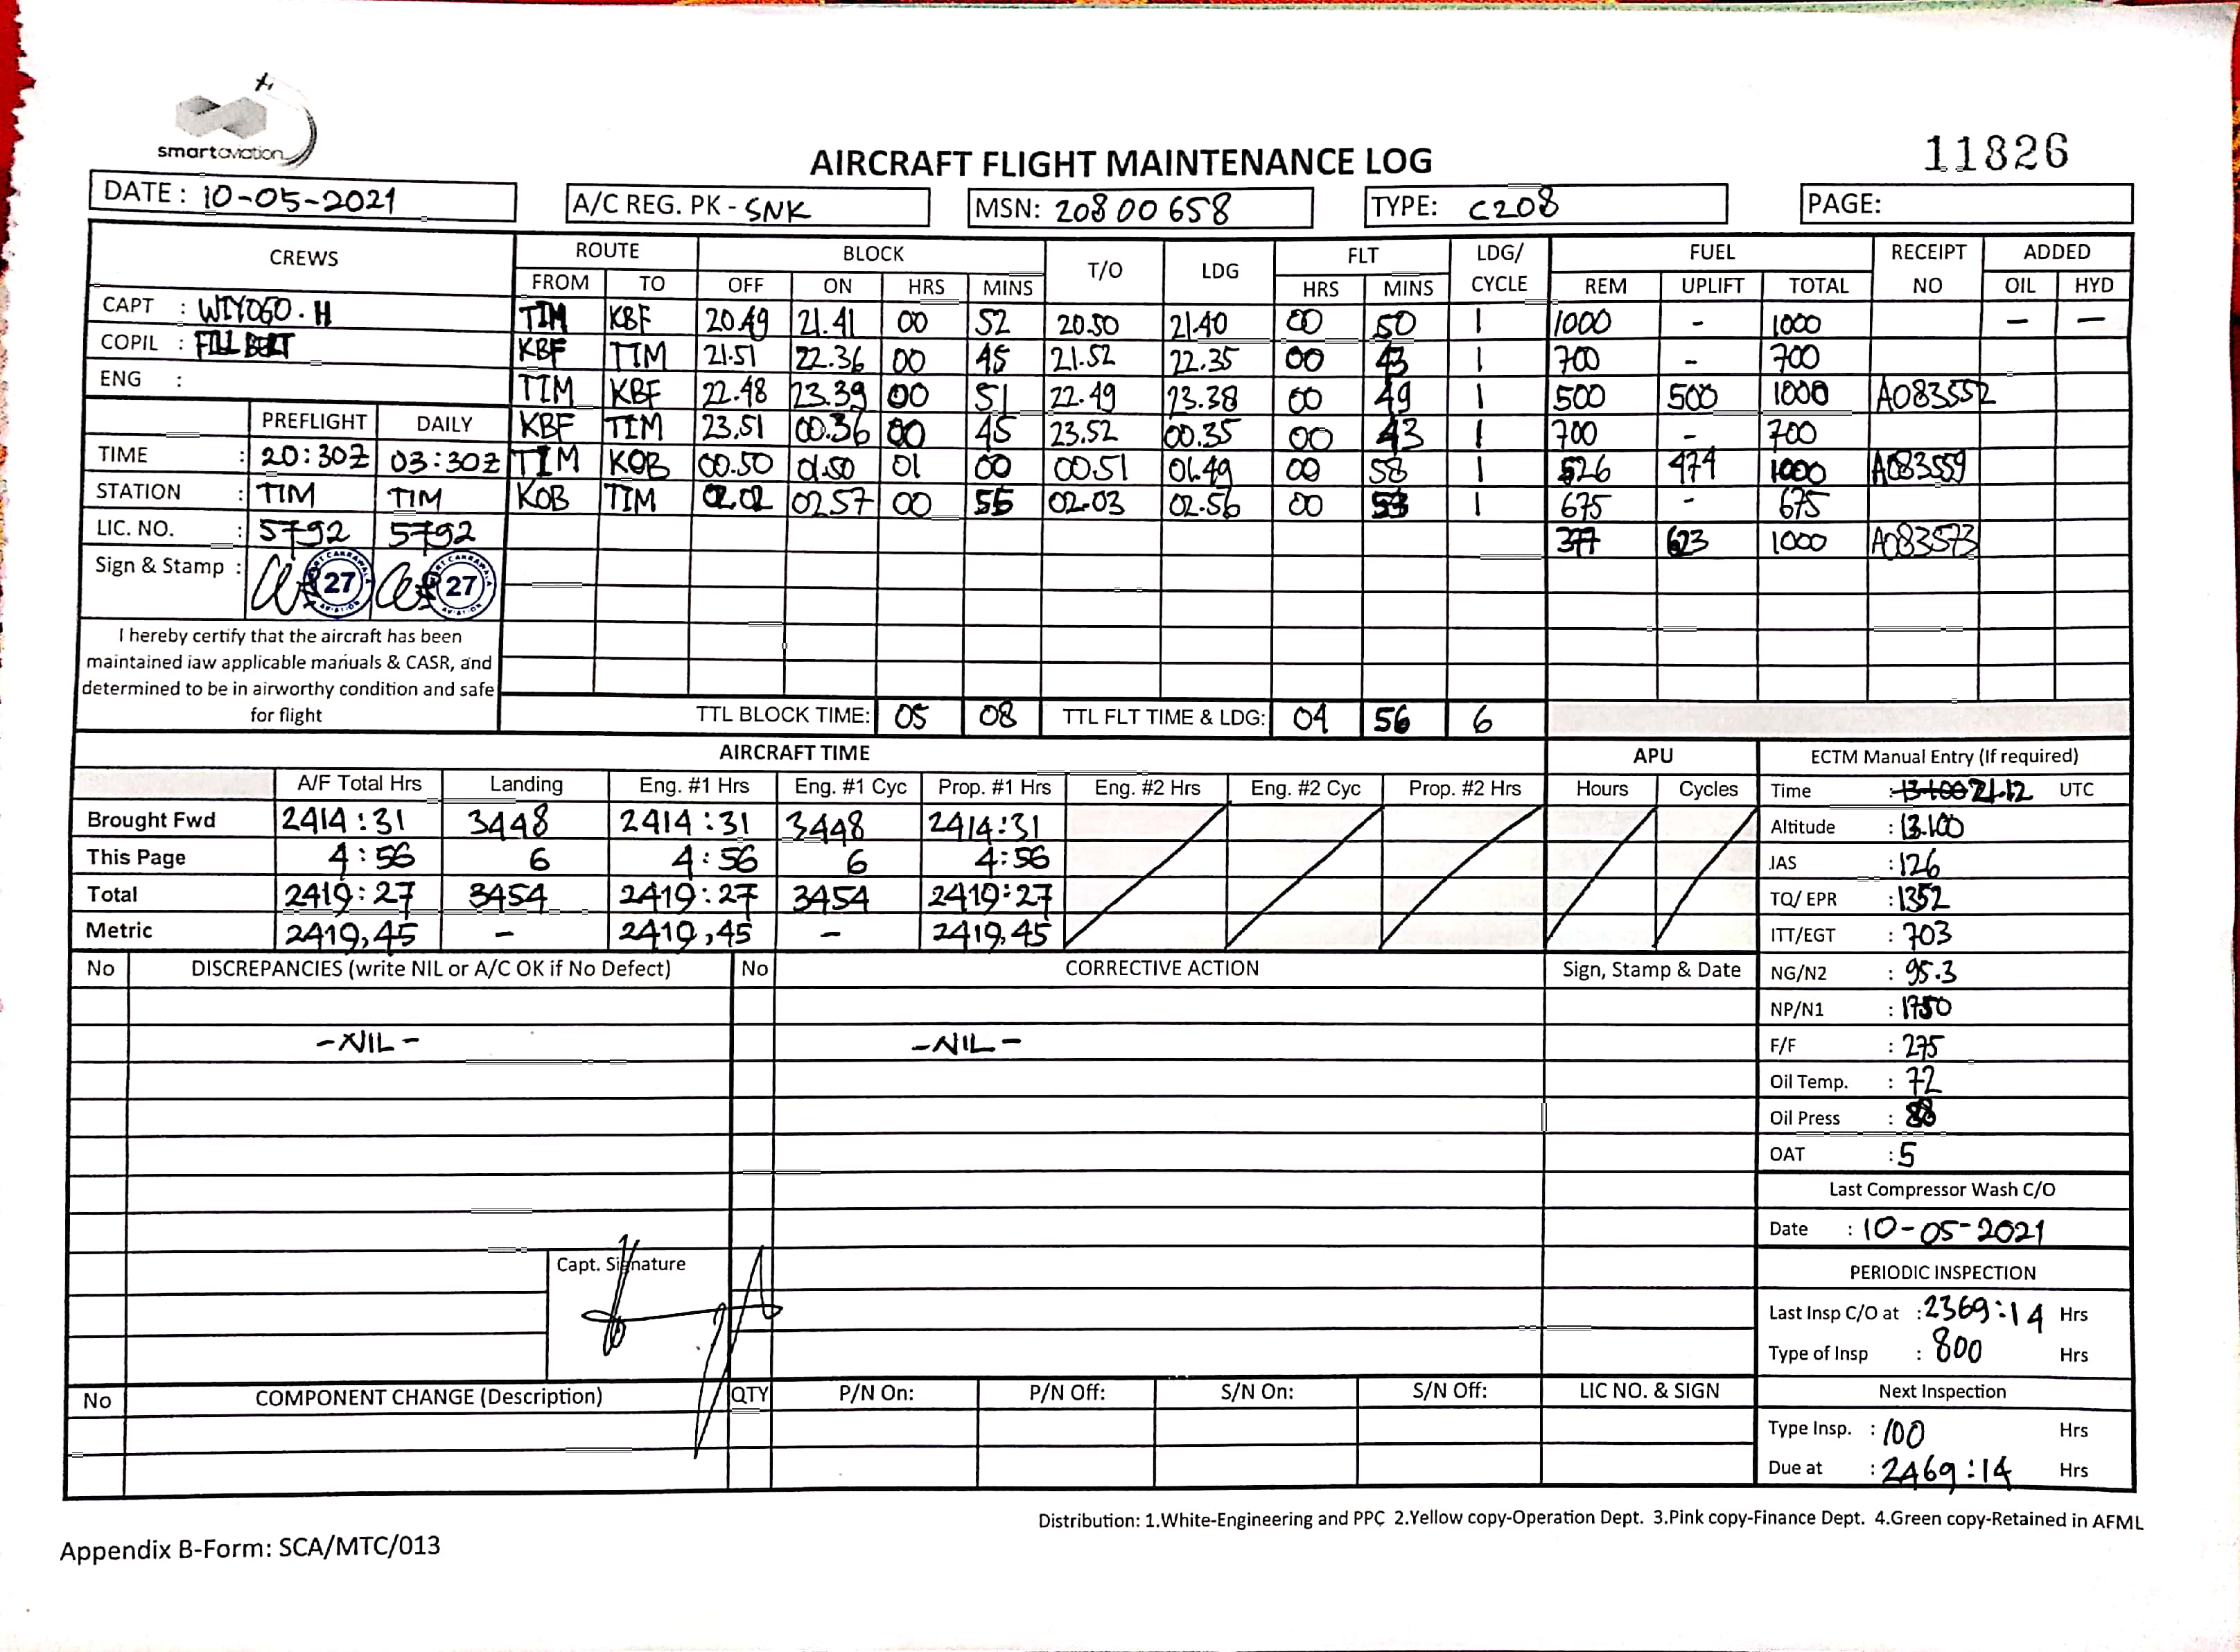 smartaviation
11826
AIRCRAFT FLIGHT MAINTENANCE LOG
DATE : 10-05-2021 A/C REG. PK - SNK MSN: 20800658 TYPE: C208 PAGE:
CREWS ROUTE BLOCK T/O LDG FLT LDG/ CYCLE FUEL RECEIPT NO ADDED
FROM TO OFF ON HRS MINS HRS MINS REM UPLIFT TOTAL OIL HYD
CAPT : WIYOGO.H TIM KBF 20.49 21.41 00 52 20.50 21.40 00 50 1 1000 - 1000 - -
COPIL : KBF TIM 21.51 22.36 00 45 21.52 22.35 00 43 1 700 - 700
ENG : TIM KBF 22.48 23.39 00 51 22.49 23.38 00 49 1 500 500 1000 A083552
PREFLIGHT DAILY KBF TIM 23.51 00.36 00 45 23.52 00.35 00 43 1 700 - 700
TIME : 20:30Z 03:30Z TIM KOB 00.50 01.50 01 00 00.51 01.49 00 58 1 526 474 1000 A083559
STATION : TIM TIM KOB TIM 02.02 02.57 00 55 02.03 02.56 00 53 1 675 - 675
LIC. NO. : 5792 5792 377 623 1000 A083573
Sign & Stamp : 27 27
I hereby certify that the aircraft has been
maintained iaw applicable manuals & CASR, and
determined to be in airworthy condition and safe
for flight
TTL BLOCK TIME: 05 08 TTL FLT TIME & LDG: 04 56 6
AIRCRAFT TIME APU ECTM Manual Entry (If required)
A/F Total Hrs Landing Eng. #1 Hrs Eng. #1 Cyc Prop. #1 Hrs Eng. #2 Hrs Eng. #2 Cyc Prop. #2 Hrs Hours Cycles Time : 21.12 UTC
Brought Fwd 2414:31 3448 2414:31 3448 2414:31 Altitude : 13.100
This Page 4:56 6 4:56 6 4:56 IAS : 126
Total 2419:27 3454 2419:27 3454 2419:27 TQ/ EPR : 1352
Metric 2419,45 - 2419,45 - 2419,45 ITT/EGT : 703
No DISCREPANCIES (write NIL or A/C OK if No Defect) No CORRECTIVE ACTION Sign, Stamp & Date NG/N2 : 95.3
NP/N1 : 1750
-NIL- -NIL- F/F : 275
Oil Temp. : 72
Oil Press : 88
OAT : 5
Last Compressor Wash C/O
Date : 10-05-2021
Capt. Signature
PERIODIC INSPECTION
Last Insp C/O at : 2369:14 Hrs
Type of Insp : 800 Hrs
No COMPONENT CHANGE (Description) QTY P/N On: P/N Off: S/N On: S/N Off: LIC NO. & SIGN Next Inspection
Type Insp. : 100 Hrs
Due at : 2469:14 Hrs
Distribution: 1.White-Engineering and PPC 2.Yellow copy-Operation Dept. 3.Pink copy-Finance Dept. 4.Green copy-Retained in AFML
Appendix B-Form: SCA/MTC/013